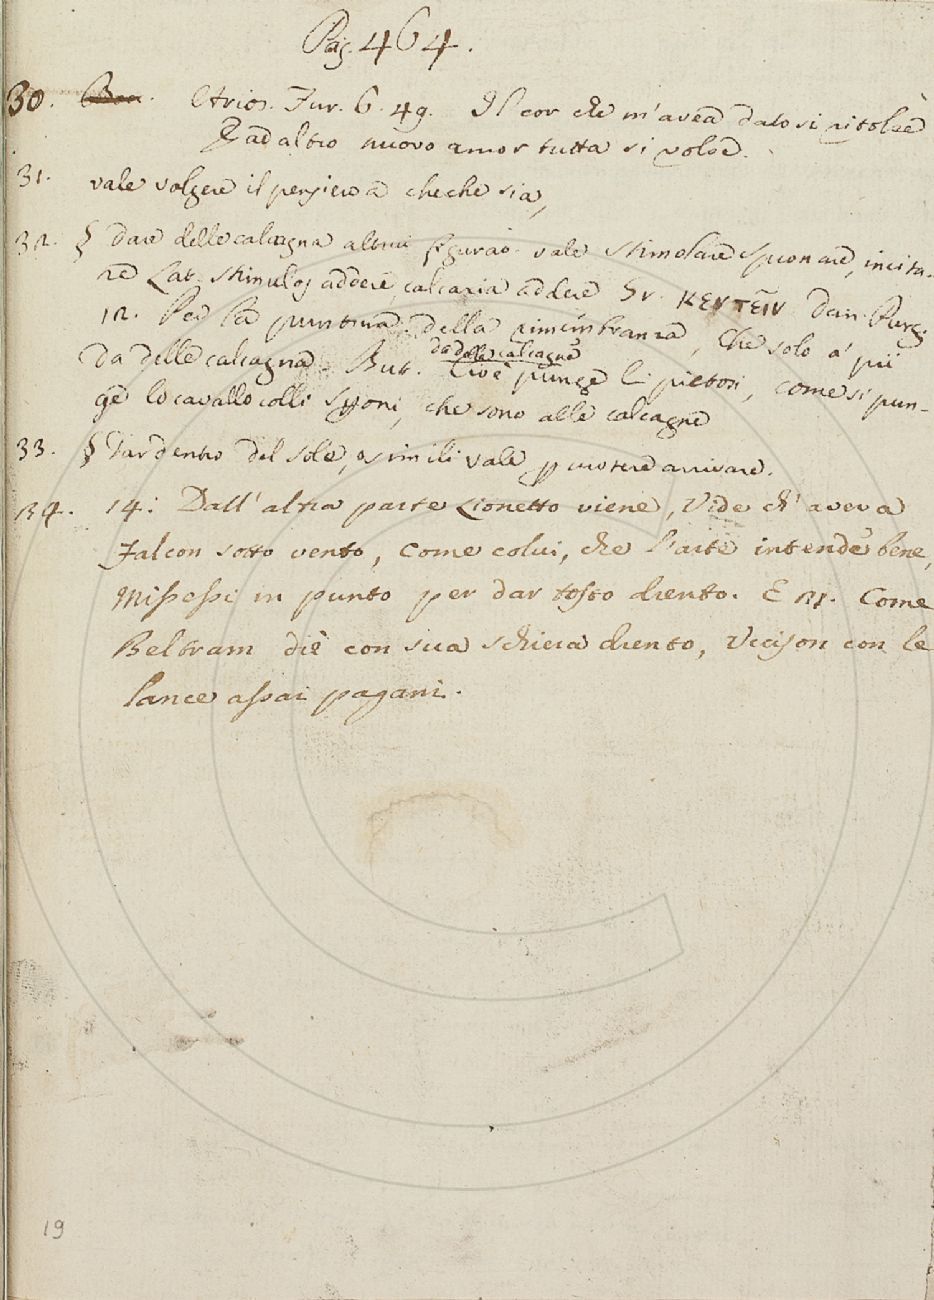 Pag. 464.
30. Boc. Arios. Fur. 6. 49. Il cor che m'avea dato si ritolse
E ad altro nuovo amor tutta si volse.
31. vale volgere il pensiero a cheche sia,
32. § dare delle calcagna altrui figurao. vale stimolare spronare, incita-
re Lat. stimulos addere, calcaria addere Gr. κεντεῖν Dan. Purg.
12. Per la puntura della rimembranza, Che solo a' pii
da delle calcagna. But. da delle calcagne Cioè punge li pietosi, come si pun-
ge lo cavallo colli sproni, che sono alle calcagne
33. § Dar dentro del sole, o simili vale percuotere arrivare.
34. 14: Dall' altra parte Lionetto viene, Vide ch' aveva
Falcon sotto vento, Come colui, che l'arte intende bene,
Missesi in punto per dar tosto drento. E 21. Come
Beltram diè con sua schiera drento, Uccison con le
lance assai pagani.
19